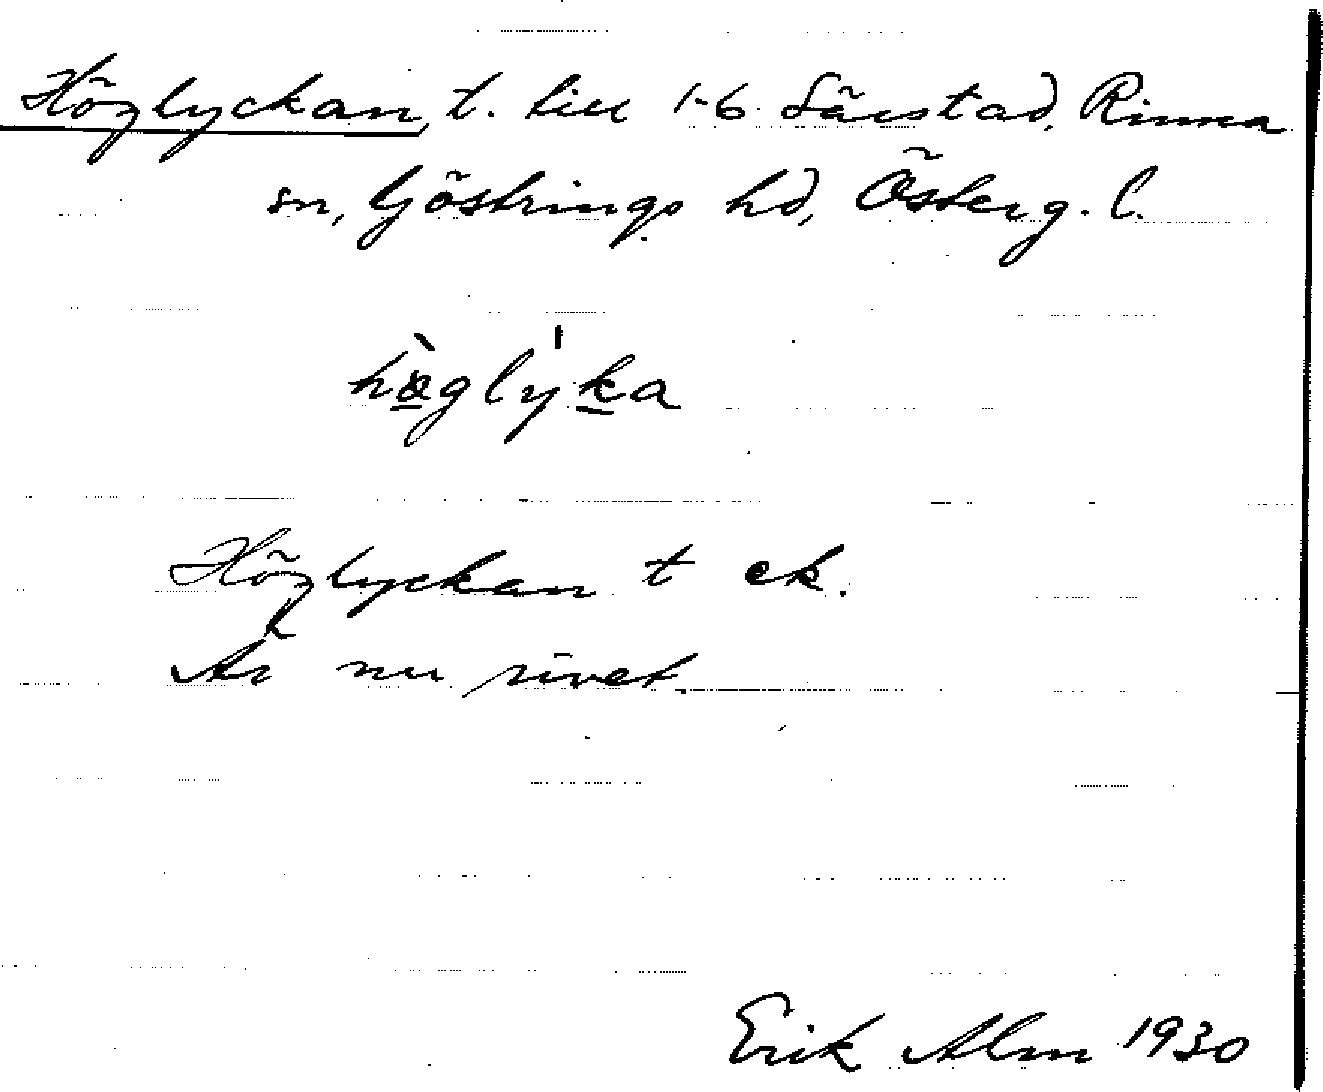 Höglyckan, t. till 1-6 Särstad, Rinna
sn, Göstrings hd, Österg. l.
hæ̀glẏka
Höglyckan t ek.
Är nu rivet.
Erik Alm 1930